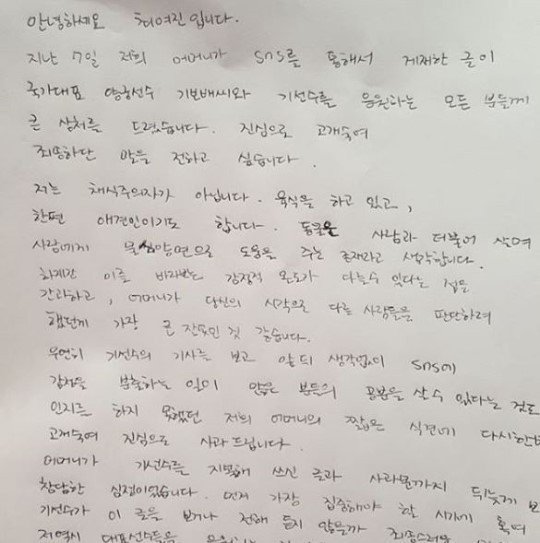 안녕하세요 최여진입니다.
지난 7일 저희 어머니가 SNS를 통해서 게재한 글이
국가대표 양궁선수 기보배씨와 기선수를 응원하는 모든 분들께
큰 상처를 드렸습니다. 진심으로 고개숙여
죄송하단 말을 전하고 싶습니다.
저는 채식주의자가 아닙니다. 육식을 하고 있고,
한편 애견인이기도 합니다. 동물은 사람과 더불어 살며
사람에게 물심양면으로 도움을 주는 존재라고 생각합니다.
허나 이를 바라보는 감정적 온도가 다를수 있다는 점을
간과하고, 어머니가 당신의 시각으로 다른 사람들을 판단하려
했던게 가장 큰 잘못인 것 같습니다.
우연히 기선수의 기사를 보고 앞뒤 생각없이 SNS에
감정을 분출하는 일이 많은 분들의 공분을 살 수 있다는 걸
인지를 하지 못했던 저희 어머니의 짧은 식견에 다시한번
고개숙여 진심으로 사과드립니다.
어머니가 기선수를 지목해 쓰신 글과 사과문까지 뒤늦게
참담한 심정이었습니다. 먼저 가장 집중해야 할 시기에 혹여
기선수가 이 글을 보거나 전해 듣지 않을까 죄송스러운
저역시 대표선수들을